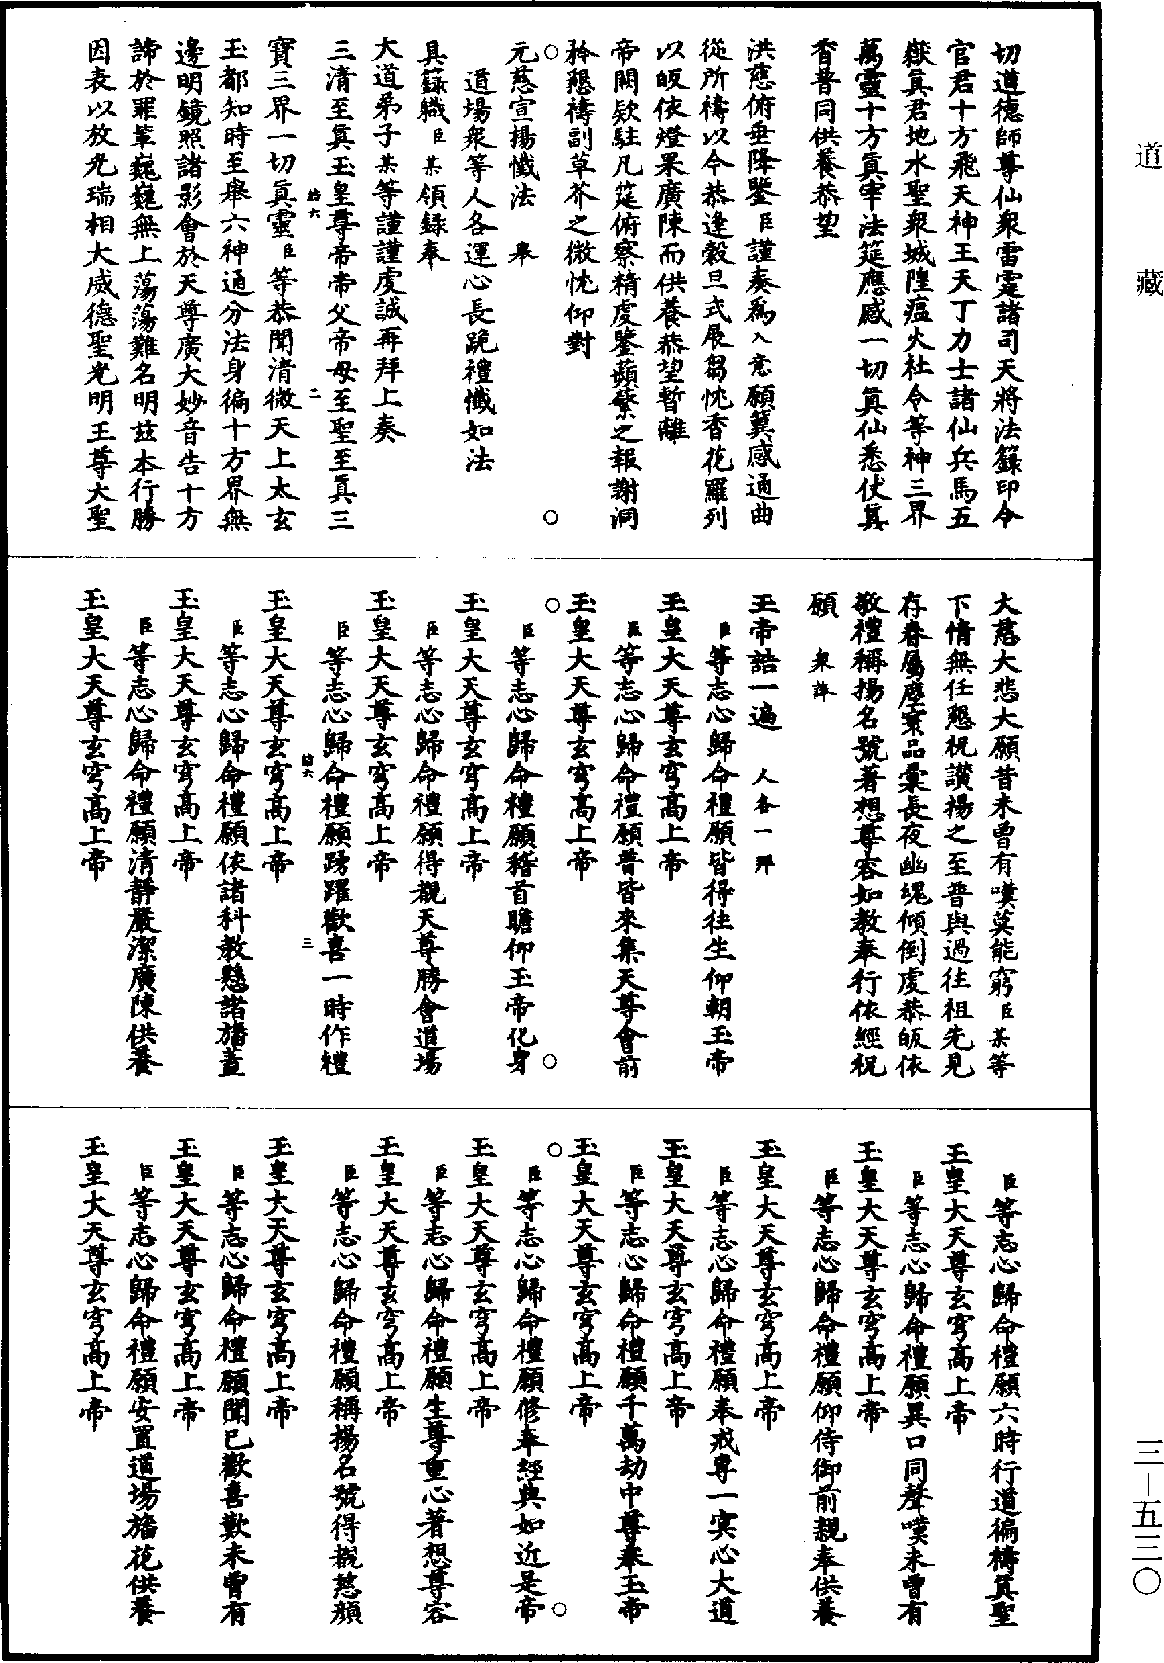 道藏
切道德師尊仙衆雷霆諸司天將法籙印令
官君十方飛天神王天丁力士諸仙兵馬五
嶽眞君地水聖衆城隍瘟火社令等神三界
萬靈十方眞宰法筵應感一切眞仙悉仗眞
香普同供養恭望
洪慈俯垂降鑒臣謹奏爲入意願冀感通曲
從所禱以今恭逢穀旦式展芻忱香花羅列
以皈依燈果廣陳而供養恭望暫離
帝闕欵駐凡筵俯察精虔鑒蘋蘩之報謝洞
矜懇禱副草芥之微忱仰對
元慈宣揚懺法 舉
道場衆等人各運心長跪禮懺如法
具籙職臣某領錄奉
大道弟子某等謹謹虔誠再拜上奏
三清至眞玉皇尊帝帝父帝母至聖至眞三
拾六 二
寶三界一切眞靈臣等恭聞清微天上太玄
玉都知時至舉六神通分法身徧十方界無
邊明鏡照諸影會於天尊廣大妙音告十方
諦於罪輩巍巍無上蕩蕩難名明玆本行勝
因表以放光瑞相大威德聖光明王尊大聖
大慈大悲大願昔未曾有嘆莫能窮臣某等
下情無任懇祝讚揚之至普與過往祖先見
存眷屬壓案品彙長夜幽魂傾倒虔恭皈依
敬禮稱揚名號著想尊容如教奉行依經祝
願 衆諱
玉帝誥一遍 人各一拜
臣等志心歸命禮願皆得往生仰朝玉帝
玉皇大天尊玄穹高上帝
臣等志心歸命禮願普皆來集天尊會前
玉皇大天尊玄穹高上帝
臣等志心歸命禮願稽首瞻仰玉帝化身
玉皇大天尊玄穹高上帝
臣等志心歸命禮願得覩天尊勝會道場
玉皇大天尊玄穹高上帝
臣等志心歸命禮願踴躍歡喜一時作禮
拾六 三
玉皇大天尊玄穹高上帝
臣等志心歸命禮願依諸科教懸諸旛蓋
玉皇大天尊玄穹高上帝
臣等志心歸命禮願清靜嚴潔廣陳供養
玉皇大天尊玄穹高上帝
臣等志心歸命禮願六時行道徧禱眞聖
玉皇大天尊玄穹高上帝
臣等志心歸命禮願異口同聲嘆未曾有
玉皇大天尊玄穹高上帝
臣等志心歸命禮願仰侍御前親奉供養
玉皇大天尊玄穹高上帝
臣等志心歸命禮願奉戒專一寞心大道
玉皇大天尊玄穹高上帝
臣等志心歸命禮願千萬劫中尊奉玉帝
玉皇大天尊玄穹高上帝
臣等志心歸命禮願修奉經典如近是帝
玉皇大天尊玄穹高上帝
臣等志心歸命禮願生尊重心著想尊容
玉皇大天尊玄穹高上帝
臣等志心歸命禮願稱揚名號得覩慈顏
玉皇大天尊玄穹高上帝
臣等志心歸命禮願聞已歡喜歎未曾有
玉皇大天尊玄穹高上帝
臣等志心歸命禮願安置道場旛花供養
玉皇大天尊玄穹高上帝
三—五三〇